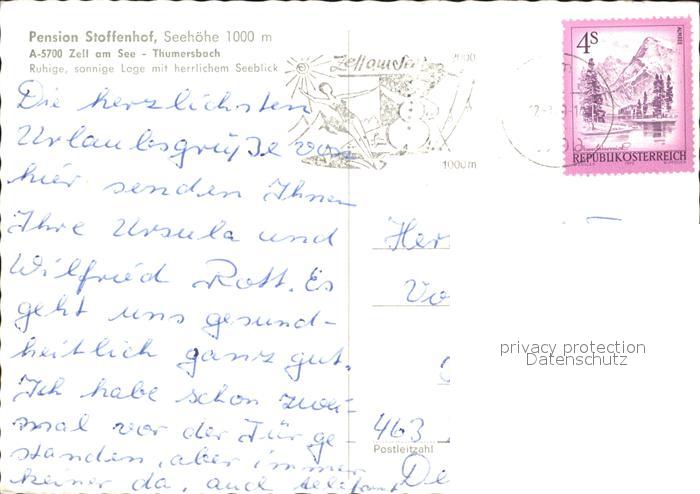 Pension Stoffenhof, Seehöhe 1000 m
A-5700 Zell am See - Thumersbach
Ruhige, sonnige Lage mit herrlichem Seeblick
Zell am See
2000
1000m
4s
ALMSEE
REPUBLIK ÖSTERREICH
Die herzlichsten
Urlaubsgrüße von
hier senden Ihnen
Ihre Ursula und
Wilfried Rott. Es
geht uns gesund-
heitlich ganz gut.
Ich habe schon zwei-
mal vor der Tür ge
standen, aber immer
keiner da, auch telefon
Her
Vo
463
Postleitzahl
De
privacy protection
Datenschutz